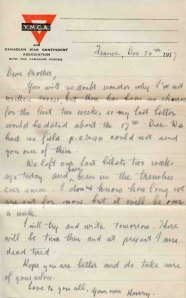 Y.M.C.A.
CANADIAN WAR CONTINGENT
ASSOCIATION
WITH THE CANADIAN FORCES
France Dec 30th 1917
Dear Mother,
You will no doubt wonder why I've not
written sooner but there has been no chance
for the last two weeks, so my last letter
would be dated about the 17th Dec. We
had no field p. cards could not send
you one of them.
We left our last billets two weeks
ago today and have been in the trenches
ever since. I don't know how long we
are out for now but it will be over
a week.
I will try and write tomorrow. There
will be time then and at present I am
dead tired.
Hope you are better and do take care
of yourselves.
Love to you all, Your son Harry.